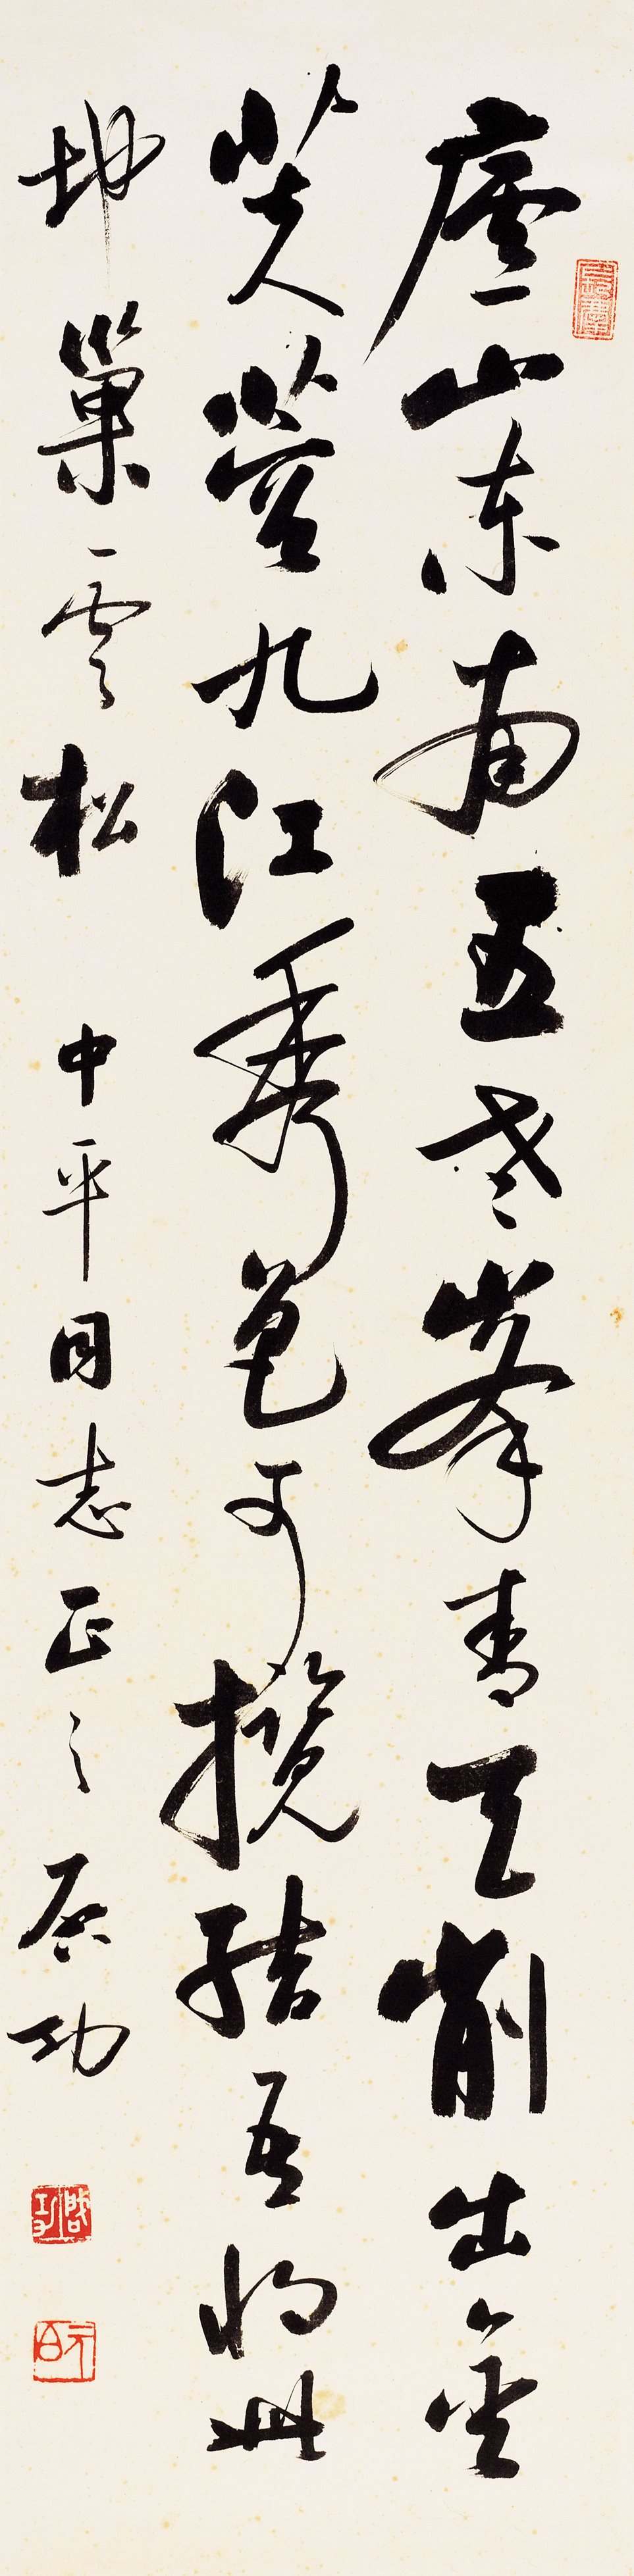 廬山东南五老峯青天削出金
芙蓉九江秀色可攬結吾將此
地巢雲松 中平同志正之 启功
啟功